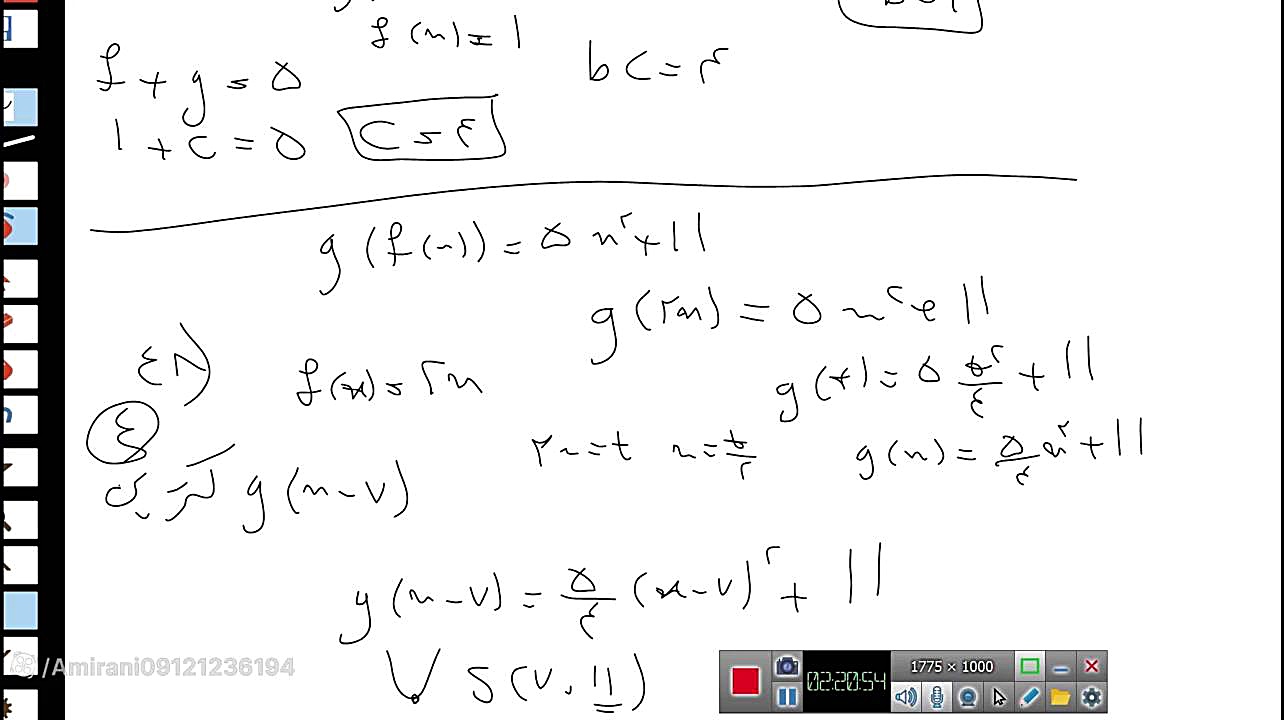 f(x) = 1
f + g = ۵
bc = ۴
1 + c = ۵
c = ۴
g(f(x)) = ۵x^۲ + ۱۱
g(۲x) = ۵x^۲ + ۱۱
۴۸)
f(x) = ۲x
g(t) = ۵ t^۲/۴ + ۱۱
۴
۲x = t x = t/۲
g(x) = ۵/۴ x^۲ + ۱۱
g(x - ۷)
g(x - ۷) = ۵/۴ (x - ۷)^۲ + ۱۱
S(۷, ۱۱)
/Amirani09121236194
1775 × 1000
02:20:54